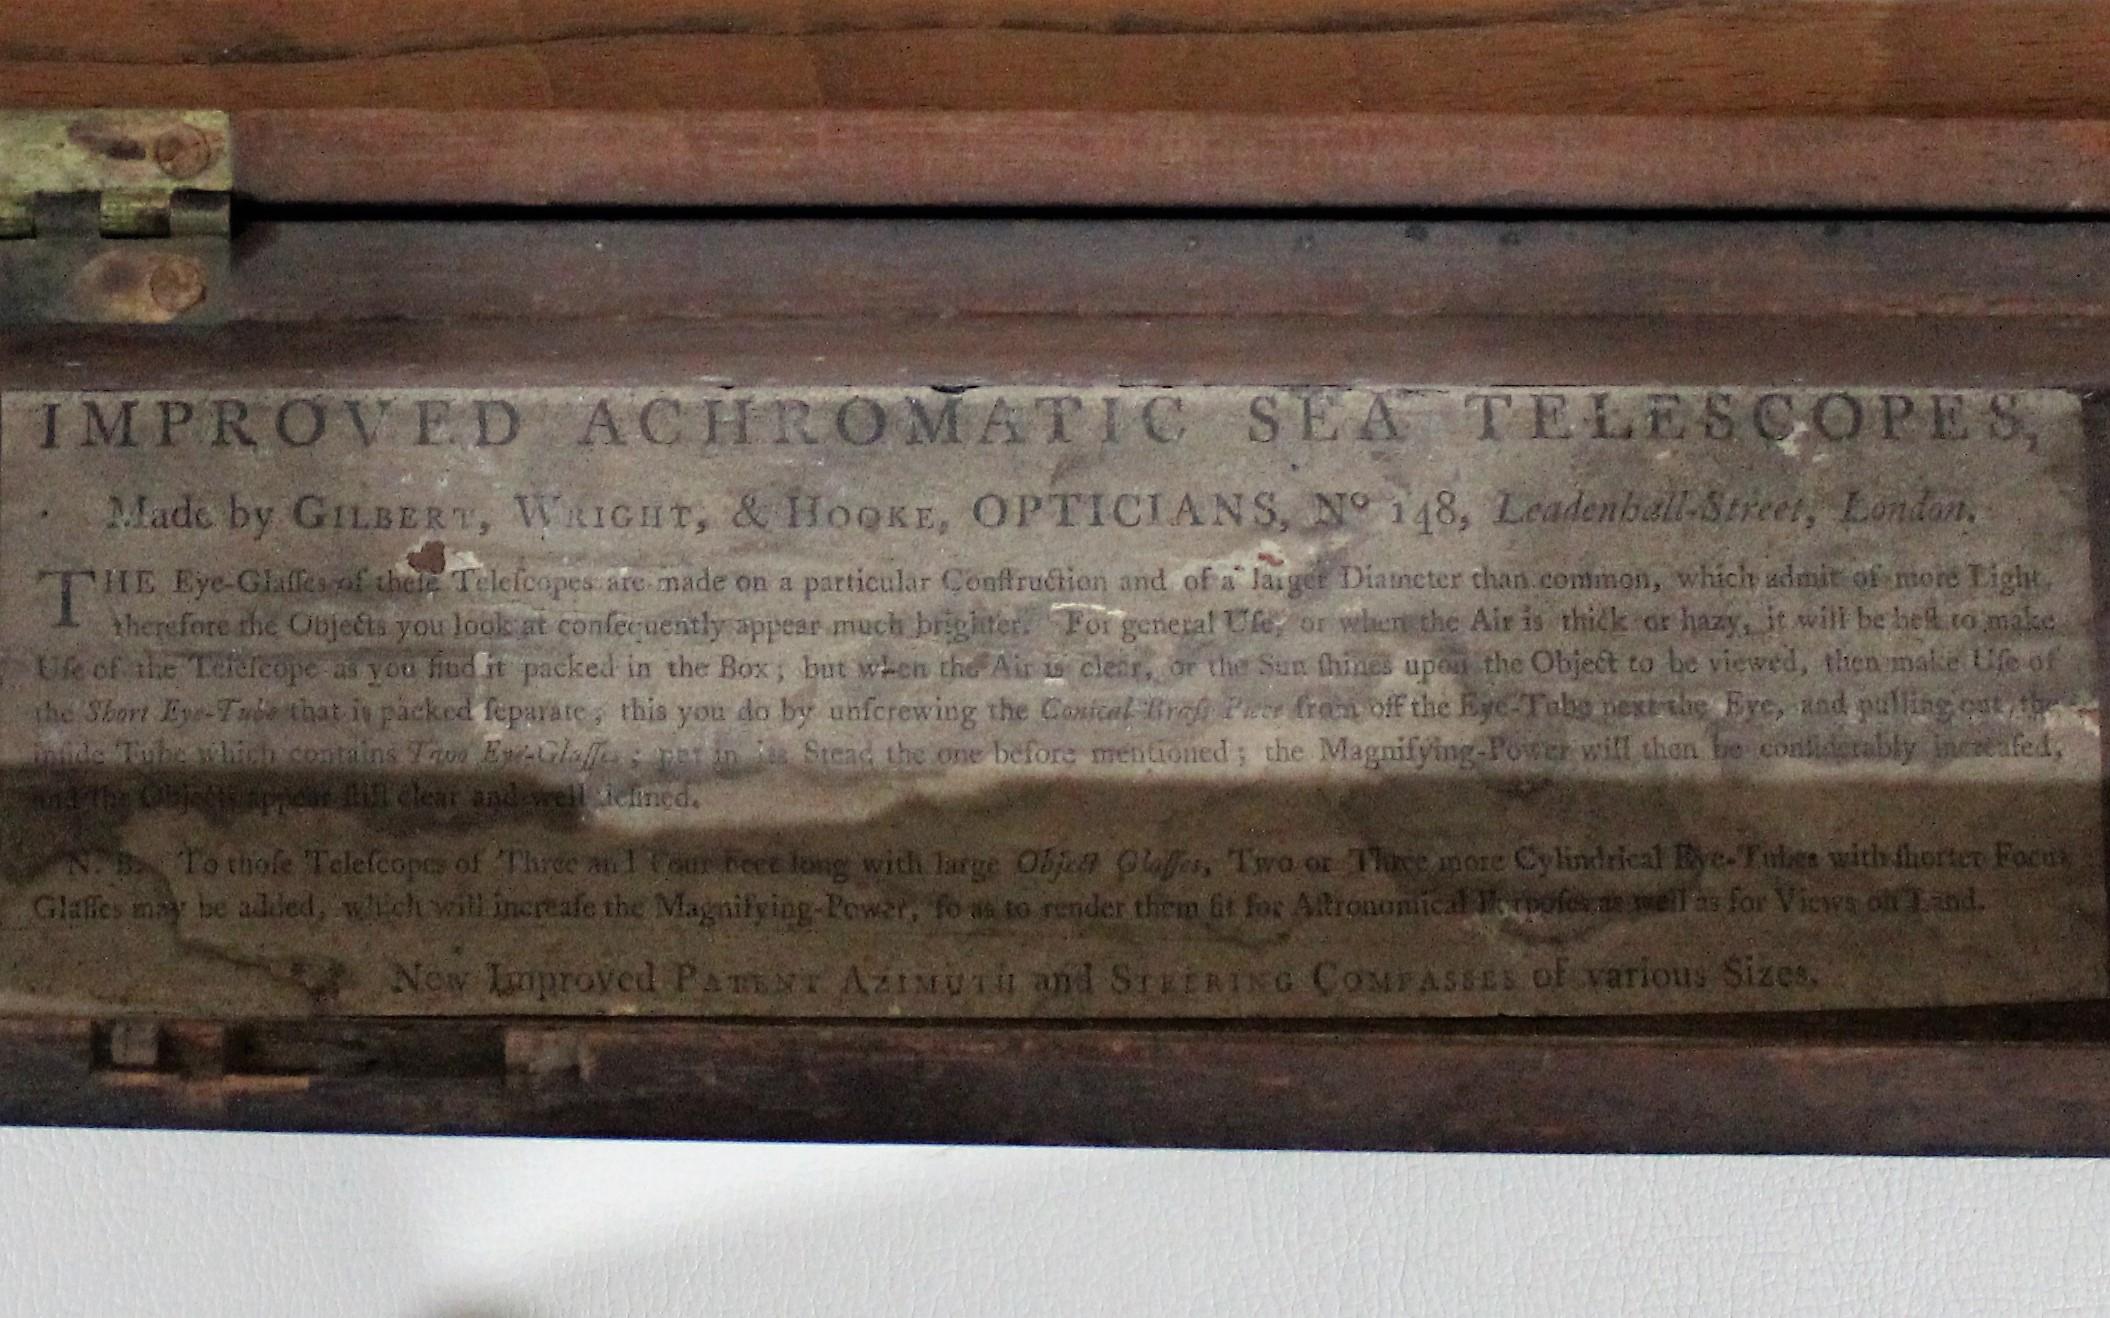 IMPROVED ACHROMATIC SEA TELESCOPES,
Made by GILBERT, WRIGHT, & HOOKE, OPTICIANS, Nº 148, Leadenhall-Street, London.
THE Eye-Glaſſes of theſe Teleſcopes are made on a particular Conſtruction and of a larger Diameter than common, which admit of more Light,
therefore the Objects you look at conſequently appear much brighter. For general Uſe, or when the Air is thick or hazy, it will be beſt to make
Uſe of the Teleſcope as you find it packed in the Box; but when the Air is clear, or the Sun ſhines upon the Object to be viewed, then make Uſe of
the Short Eye-Tube that is packed ſeparate; this you do by unſcrewing the Conical Braſs Piece from off the Eye-Tube next the Eye, and pulling out the
inſide Tube which contains Two Eye-Glaſſes; put in its Stead the one before mentioned; the Magnifying-Power will then be conſiderably increaſed,
and the Objects appear ſtill clear and well defined.
N. B. To thoſe Teleſcopes of Three and Four Feet long with large Object Glaſſes, Two or Three more Cylindrical Eye-Tubes with ſhorter Focus
Glaſſes may be added, which will increaſe the Magnifying-Power, ſo as to render them fit for Aſtronomical Purpoſes as well as for Views on Land.
New Improved PATENT AZIMUTH and STEERING COMPASSES of various Sizes.